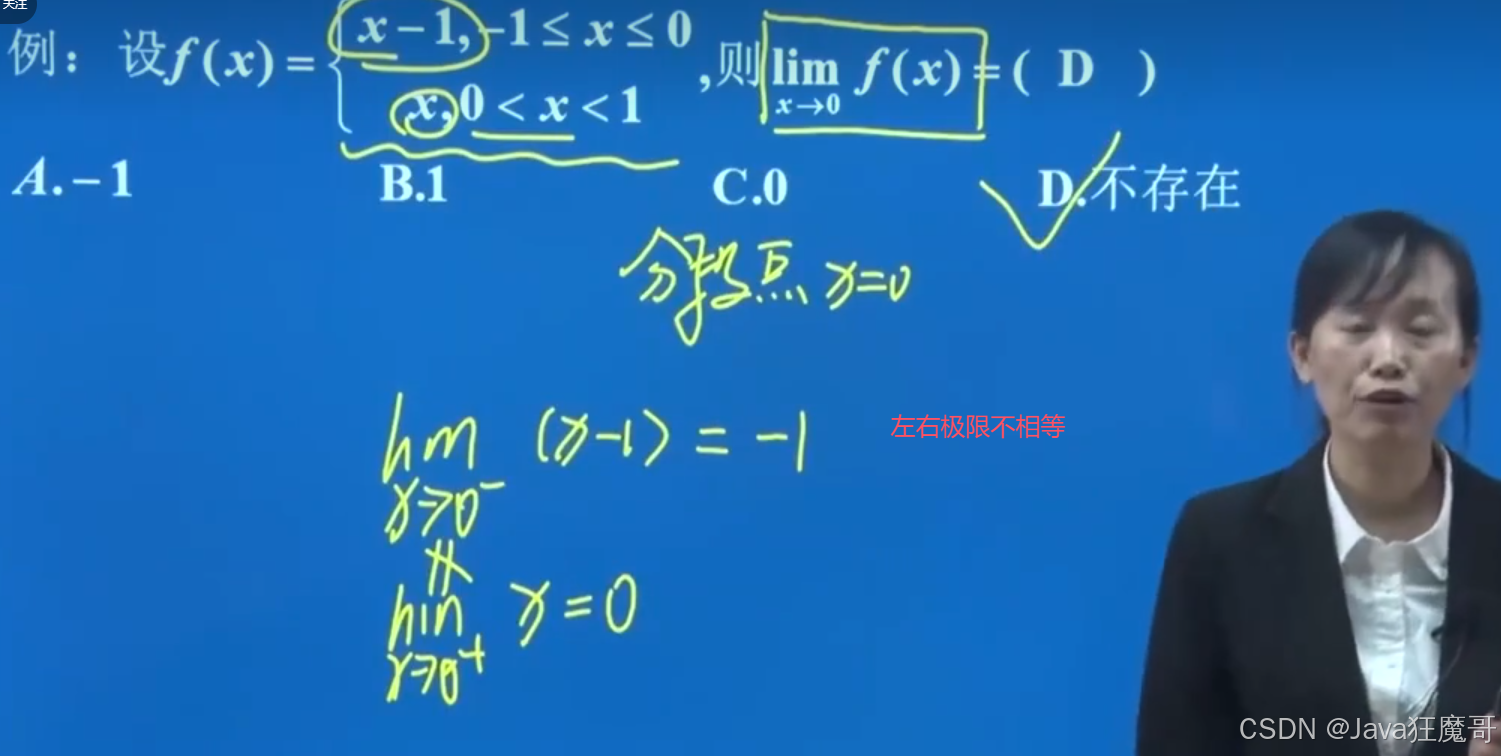 关注
例：设f(x)={x-1,-1≤x≤0
x,0<x<1
,则 lim x→0 f(x)=( D )
A.-1 B.1 C.0 D.不存在
分段点 x=0
lim x→0⁻ (x-1)=-1 左右极限不相等
≠
lim x→0⁺ x=0
CSDN @Java狂魔哥